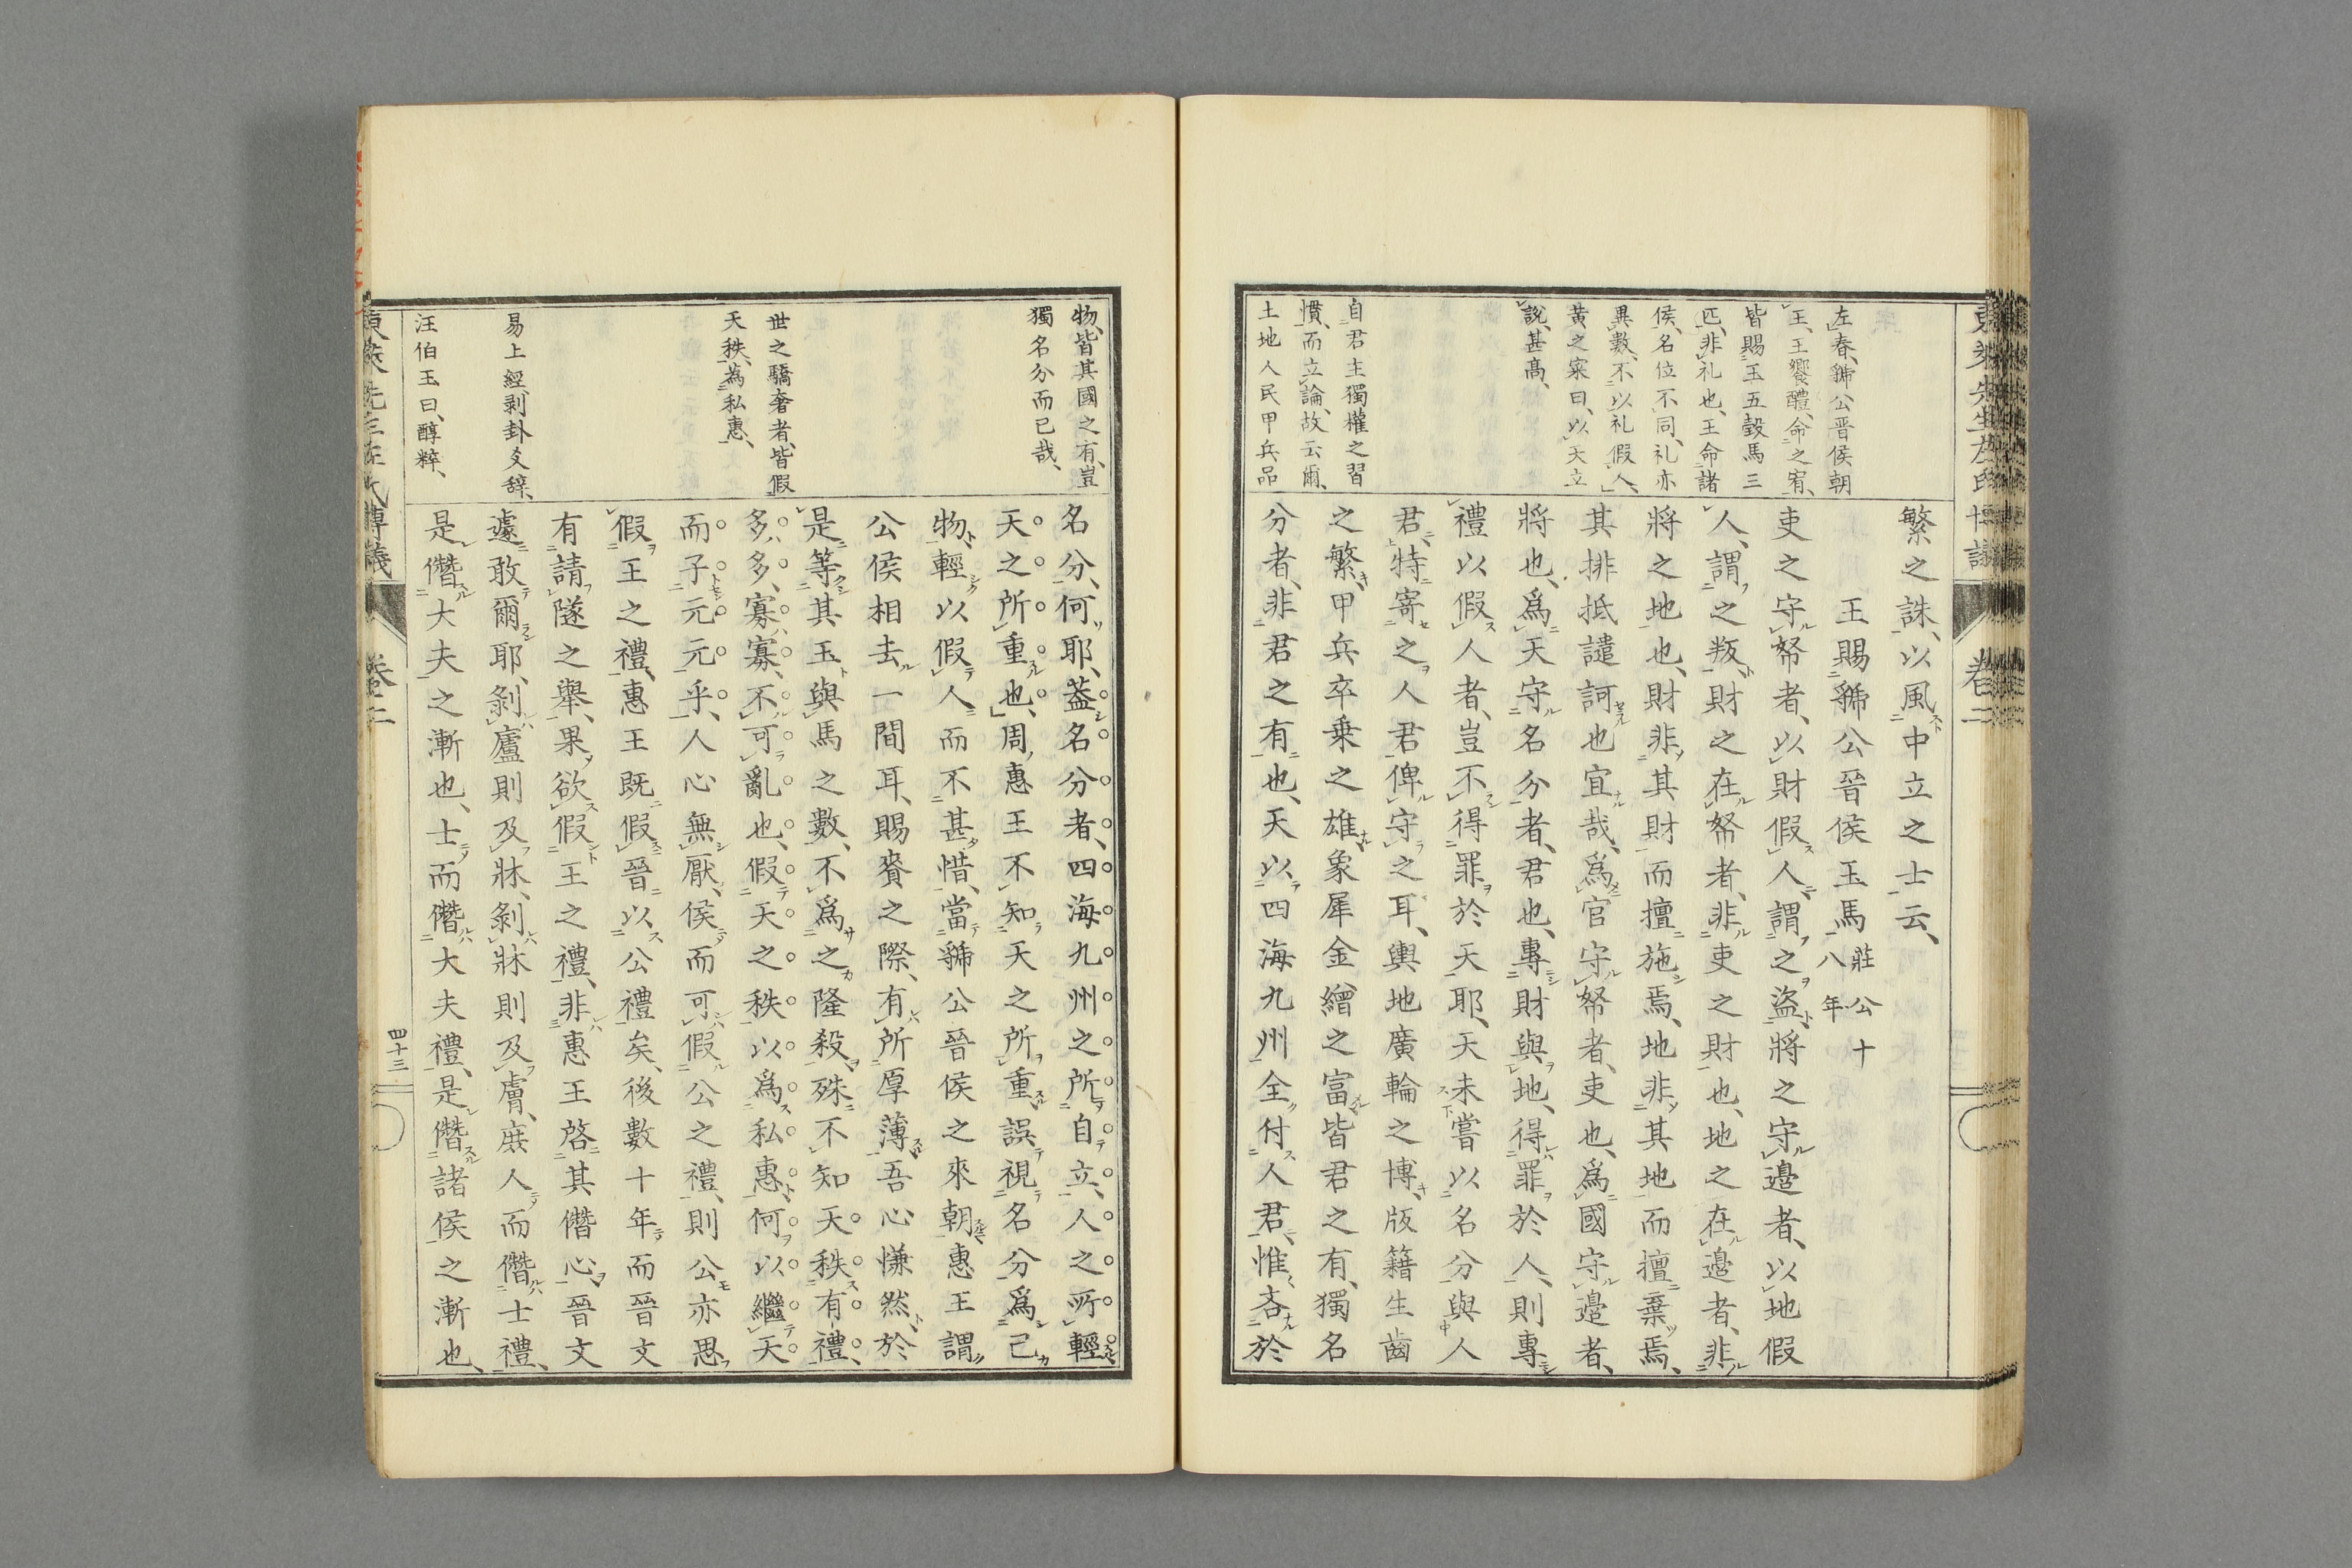 左春、虢公晋侯朝
王、王饗醴、命之宥、
皆賜玉五瑴馬三
匹、非礼也、王命諸
侯、名位不同、礼亦
異數、不以礼假人、
黄之寀曰、以天立
説、甚高、
自君主獨權之習
慣、而立論、故云爾、
土地人民甲兵品
繁之誅、以風中立之士云、
王賜虢公晉侯玉馬 莊公十八年
吏之守帑者、以財假人、謂之盜、將之守邉者、以地假
人、謂之叛、財之在帑者、非吏之財也、地之在邉者、非
將之地也、財非其財而擅施焉、地非其地而擅棄焉、
其排抵譴訶也宜哉、爲官守帑者、吏也、爲國守邉者、
將也、爲天守名分者、君也、專財與地、得罪於人、則專
禮以假人者、豈不得罪於天耶、天未嘗以名分與人
君、特寄之人君俾守之耳、輿地廣輪之博、版籍生齒
之繁、甲兵卒乗之雄、象犀金繒之富、皆君之有、獨名
分者、非君之有也、天以四海九州全付人君、惟吝於
物、皆其國之有、豈
獨名分而已哉、
世之驕奢者、皆假
天秩、為私惠、
易上經、剥卦爻辞、
汪伯玉曰、醇粹、
名分、何耶、蓋名分者、四海九州之所自立、人之所輕
天之所重也、周惠王不知天之所重、誤視名分爲己
物、輕以假人而不甚惜、當虢公晉侯之來朝、惠王謂
公侯相去一間耳、賜賚之際、有所厚薄、吾心慊然、於
是等其玉與馬之數、不爲之隆殺、殊不知天秩有禮、
多多、寡寡、不可亂也、假天之秩以爲私惠、何以繼天
而子元元乎、人心無厭、侯而可假公之禮、則公亦思
假王之禮、惠王既假晉以公禮矣、後數十年而晉文
有請隧之舉、果欲假王之禮、非惠王啓其僭心、晉文
遽敢爾耶、剝廬則及牀、剝牀則及膚、庶人而僭士禮、
是僭大夫之漸也、士而僭大夫禮、是僭諸侯之漸也、
四十三